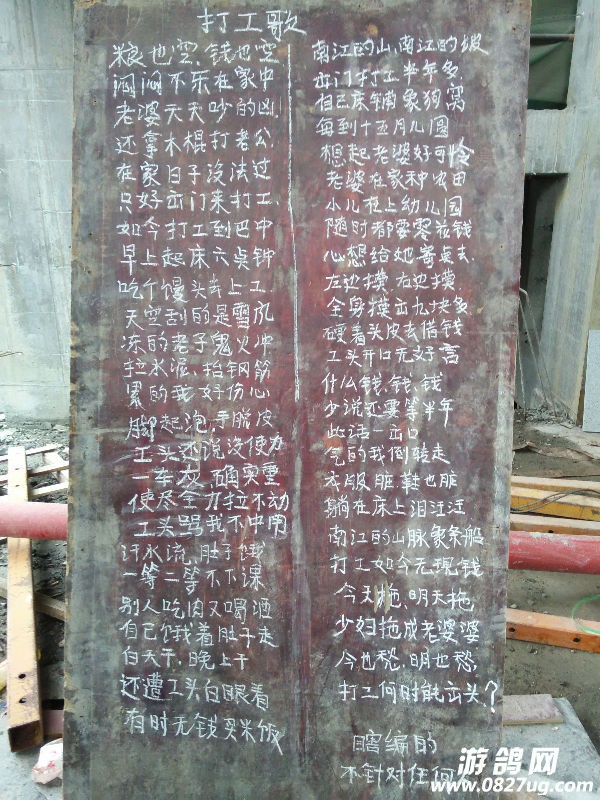 打工歌
粮也空,钱也空
闷闷不乐在家中
老婆天天吵的凶
还拿木棍打老公
在家日子没法过
只好出门来打工
如今打工到巴中
早上起床六点钟
吃个馒头奔上工
天空刮的是雪风
冻的老子鬼火冲
拉水泥,抬钢筋
累的我好伤心
脚起泡,手脱皮
工头还说没使力
一车灰,确实重
使尽全力拉不动
工头骂我不中用
汗水流,肚子饿
一等二等不下课
别人吃肉又喝酒
自己饿着肚子走
白天干,晚上干
还遭工头白眼看
有时无钱买米饭
南江的山,南江的坡
出门打工半年多
自己床铺象狗窝
每到十五月儿圆
想起老婆好可怜
老婆在家种农田
小儿在上幼儿园
随时都要零花钱
心想给她寄点去
左边摸,右边摸
全身摸出九块多
硬着头皮去借钱
工头开口无好言
什么钱,钱,钱
少说还要等半年
此话一出口
气的我倒转走
衣服脏,鞋也脏
躺在床上泪汪汪
南江的山脉象条船
打工如今无现钱
今天拖,明天拖
少妇拖成老婆婆
今也愁,明也愁
打工何时能出头?
瞎编的
不针对任何
游鸽网
www.0827ug.com